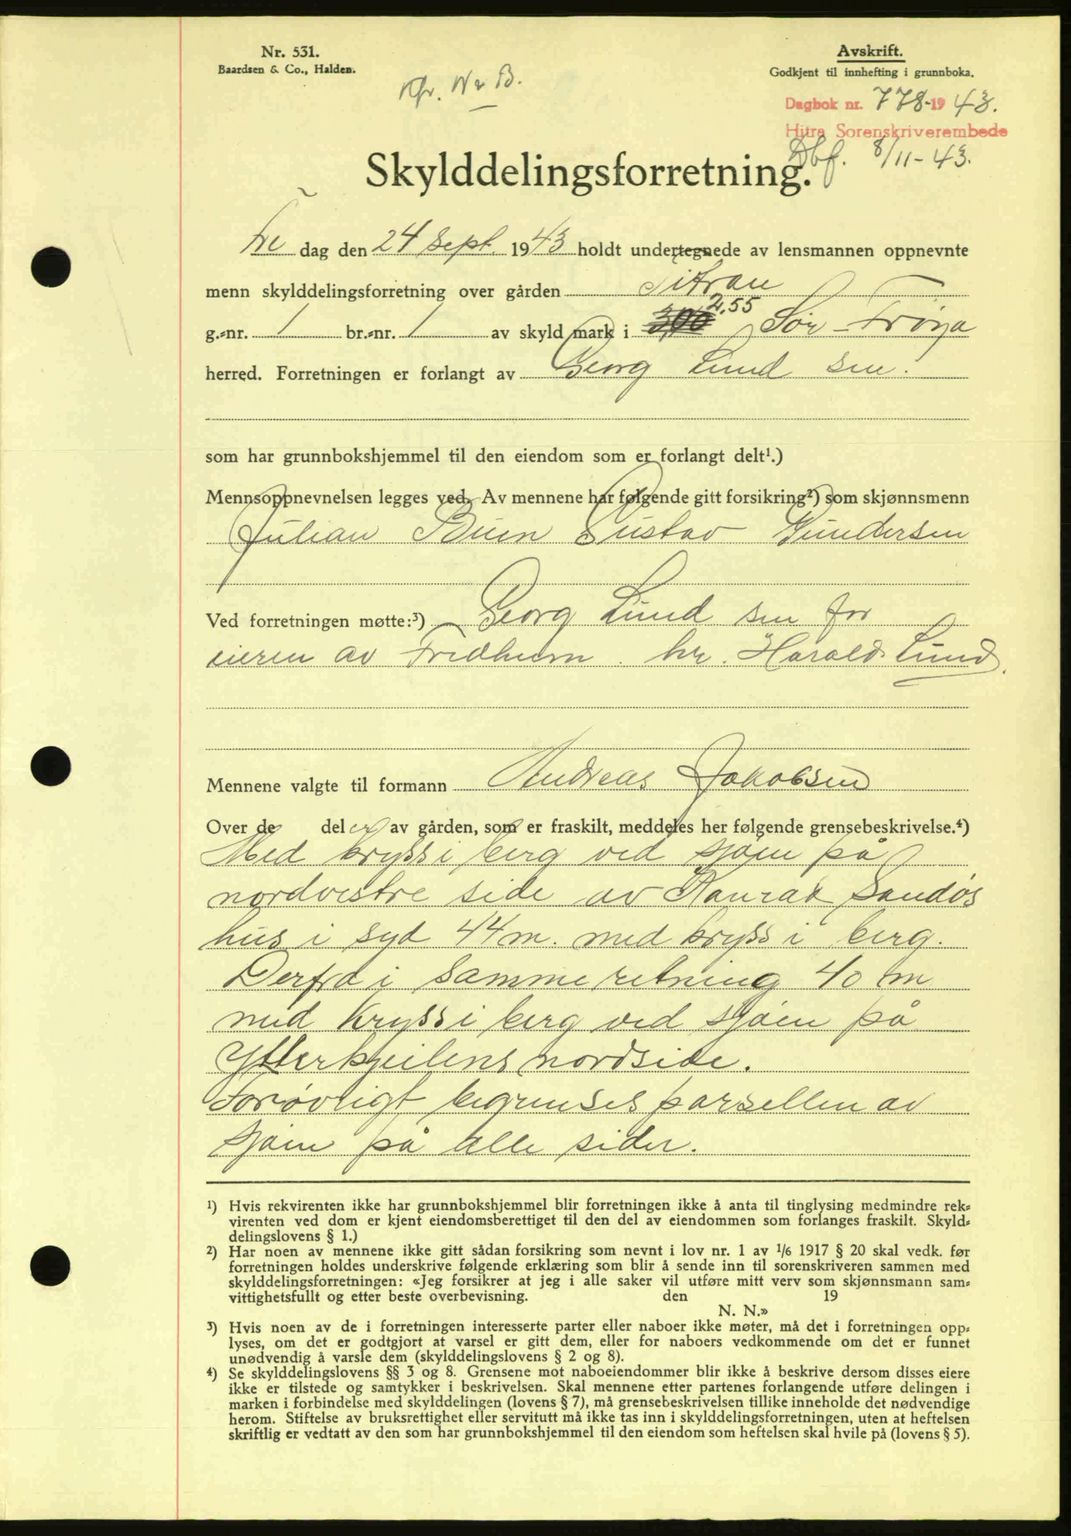 Nr. 531.
Baardsen & Co., Halden.
Nr. B.
Avskrift.
Godkjent til innhefting i grunnboka.
Dagbok nr. 778-1943.
Hitra Sorenskriverembede
Dbf. 8/11-43.
Skylddelingsforretning.
Fre dag den 24 Sept. 1943 holdt undertegnede av lensmannen oppnevnte
menn skylddelingsforretning over gården Titran
g.-nr. 1 br.-nr. 1 av skyld mark i 3,06 2.55 Sør-Frøya
herred. Forretningen er forlangt av Georg Lund sen.
som har grunnbokshjemmel til den eiendom som er forlangt delt¹.)
Mennsoppnevnelsen legges ved. Av mennene har følgende gitt forsikring²) som skjønnsmenn
Julian Buen Gustav Gundersen
Ved forretningen møtte:³) Georg Lund sen for
eieren av Fredheim. hr. Harald Lund.
Mennene valgte til formann Andreas Jakobsen
Over de del er av gården, som er fraskilt, meddeles her følgende grensebeskrivelse.⁴)
Med kryss i berg ved sjøen på
nordvestre side av Konrad Sandøs
hus i syd 44 m. med kryss i berg.
Derfra i samme retning 40 m
med kryss i berg ved sjøen på
Ytterkjeilens nordside.
Forøvrigt begrenses parsellen av
sjøen på alle sider.
¹) Hvis rekvirenten ikke har grunnbokshjemmel blir forretningen ikke å anta til tinglysing medmindre rek-
virenten ved dom er kjent eiendomsberettiget til den del av eiendommen som forlanges fraskilt. Skyld-
delingslovens § 1.)
²) Har noen av mennene ikke gitt sådan forsikring som nevnt i lov nr. 1 av 1/6 1917 § 20 skal vedk. før
forretningen holdes underskrive følgende erklæring som blir å sende inn til sorenskriveren sammen med
skylddelingsforretningen: «Jeg forsikrer at jeg i alle saker vil utføre mitt verv som skjønnsmann sam-
vittighetsfullt og etter beste overbevisning. den 19
N. N.»
³) Hvis noen av de i forretningen interesserte parter eller naboer ikke møter, må det i forretningen opp-
lyses, om det er godtgjort at varsel er gitt dem, eller for naboers vedkommende om det er funnet
unødvendig å varsle dem (skylddelingslovens § 2 og 8).
⁴) Se skylddelingslovens §§ 3 og 8. Grensene mot naboeiendommer blir ikke å beskrive dersom disses eiere
ikke er tilstede og samtykker i beskrivelsen. Skal mennene etter partenes forlangende utføre delingen i
marken i forbindelse med skylddelingen (lovens § 7), må grensebeskrivelsen tillike inneholde det nødvendige
herom. Stiftelse av bruksrettighet eller servitutt må ikke tas inn i skylddelingsforretningen, uten at heftelsen
skriftlig er vedtatt av den som har grunnbokshjemmel til den eiendom som heftelsen skal hvile på (lovens § 5).